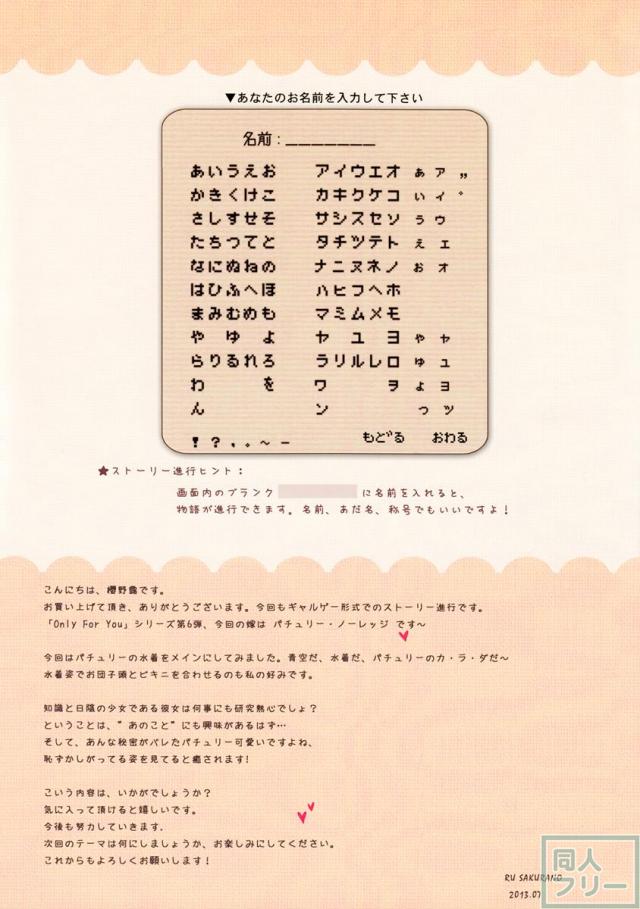 ▼あなたのお名前を入力して下さい
名前:_______
あいうえお アイウエオ ぁ ァ ”
かきくけこ カキクケコ ぃ ィ °
さしすせそ サシスセソ ぅ ゥ
たちつてと タチツテト ぇ ェ
なにぬねの ナニヌネノ ぉ ォ
はひふへほ ハヒフヘホ
まみむめも マミムメモ
や ゆ よ ヤ ユ ヨ ゃ ャ
らりるれろ ラリルレロ ゅ ュ
わ を ワ ヲ ょ ョ
ん ン っ ッ
！？，。～－ もどる おわる
★ストーリー進行ヒント：
画面内のブランク に名前を入れると、
物語が進行できます。名前、あだ名、称号でもいいですよ！
こんにちは、櫻野露です。
お買い上げて頂き、ありがとうございます。今回もギャルゲー形式でのストーリー進行です。
「Only For You」シリーズ第6弾、今回の嫁は パチュリー・ノーレッジ です～
今回はパチュリーの水着をメインにしてみました。青空だ、水着だ、パチュリーのカ・ラ・ダだ～
水着姿でお団子頭とビキニを合わせるのも私の好みです。
知識と日陰の少女である彼女は何事にも研究熱心でしょ？
ということは、”あのこと”にも興味があるはず…
そして、あんな秘密がバレたパチュリー可愛いですよね、
恥ずかしがってる姿を見てると癒されます！
こういう内容は、いかがでしょうか？
気に入って頂けると嬉しいです。
今後も努力していきます．
次回のテーマは何にしましょうか、お楽しみにしてください。
これからもよろしくお願いします！
RU SAKURANO
2013.07
同人
フリー